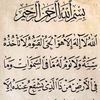 بِسْمِ اللَّهِ الرَّحْمَٰنِ الرَّحِيمِ
اللَّهُ لَا إِلَٰهَ إِلَّا هُوَ الْحَيُّ الْقَيُّومُ لَا تَأْخُذُهُ
سِنَةٌ وَلَا نَوْمٌ لَهُ مَا فِي السَّمَٰوَاتِ وَمَا
فِي الْأَرْضِ مَنْ ذَا الَّذِي يَشْفَعُ عِنْدَهُ إِلَّا